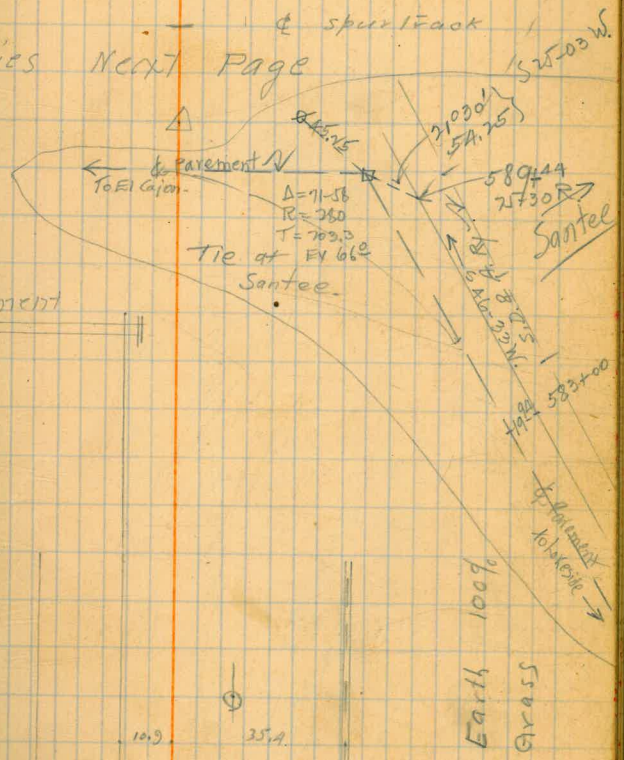 ℄ spur track
es Next Page
S 25-03 W.
85.25
21°30'
54.25
℄ Pavement
To El Cajon
589+44
75+30 R
Santee
Δ = 71-58
R = 280
T = 203.3
Tie at EV 66º
Santee.
S.D. & A. Ry
S 46-33 W.
ment
583+00
+19.94
℄ Pavement
to Lakeside
Earth 100%
Grass
10.9
35.4